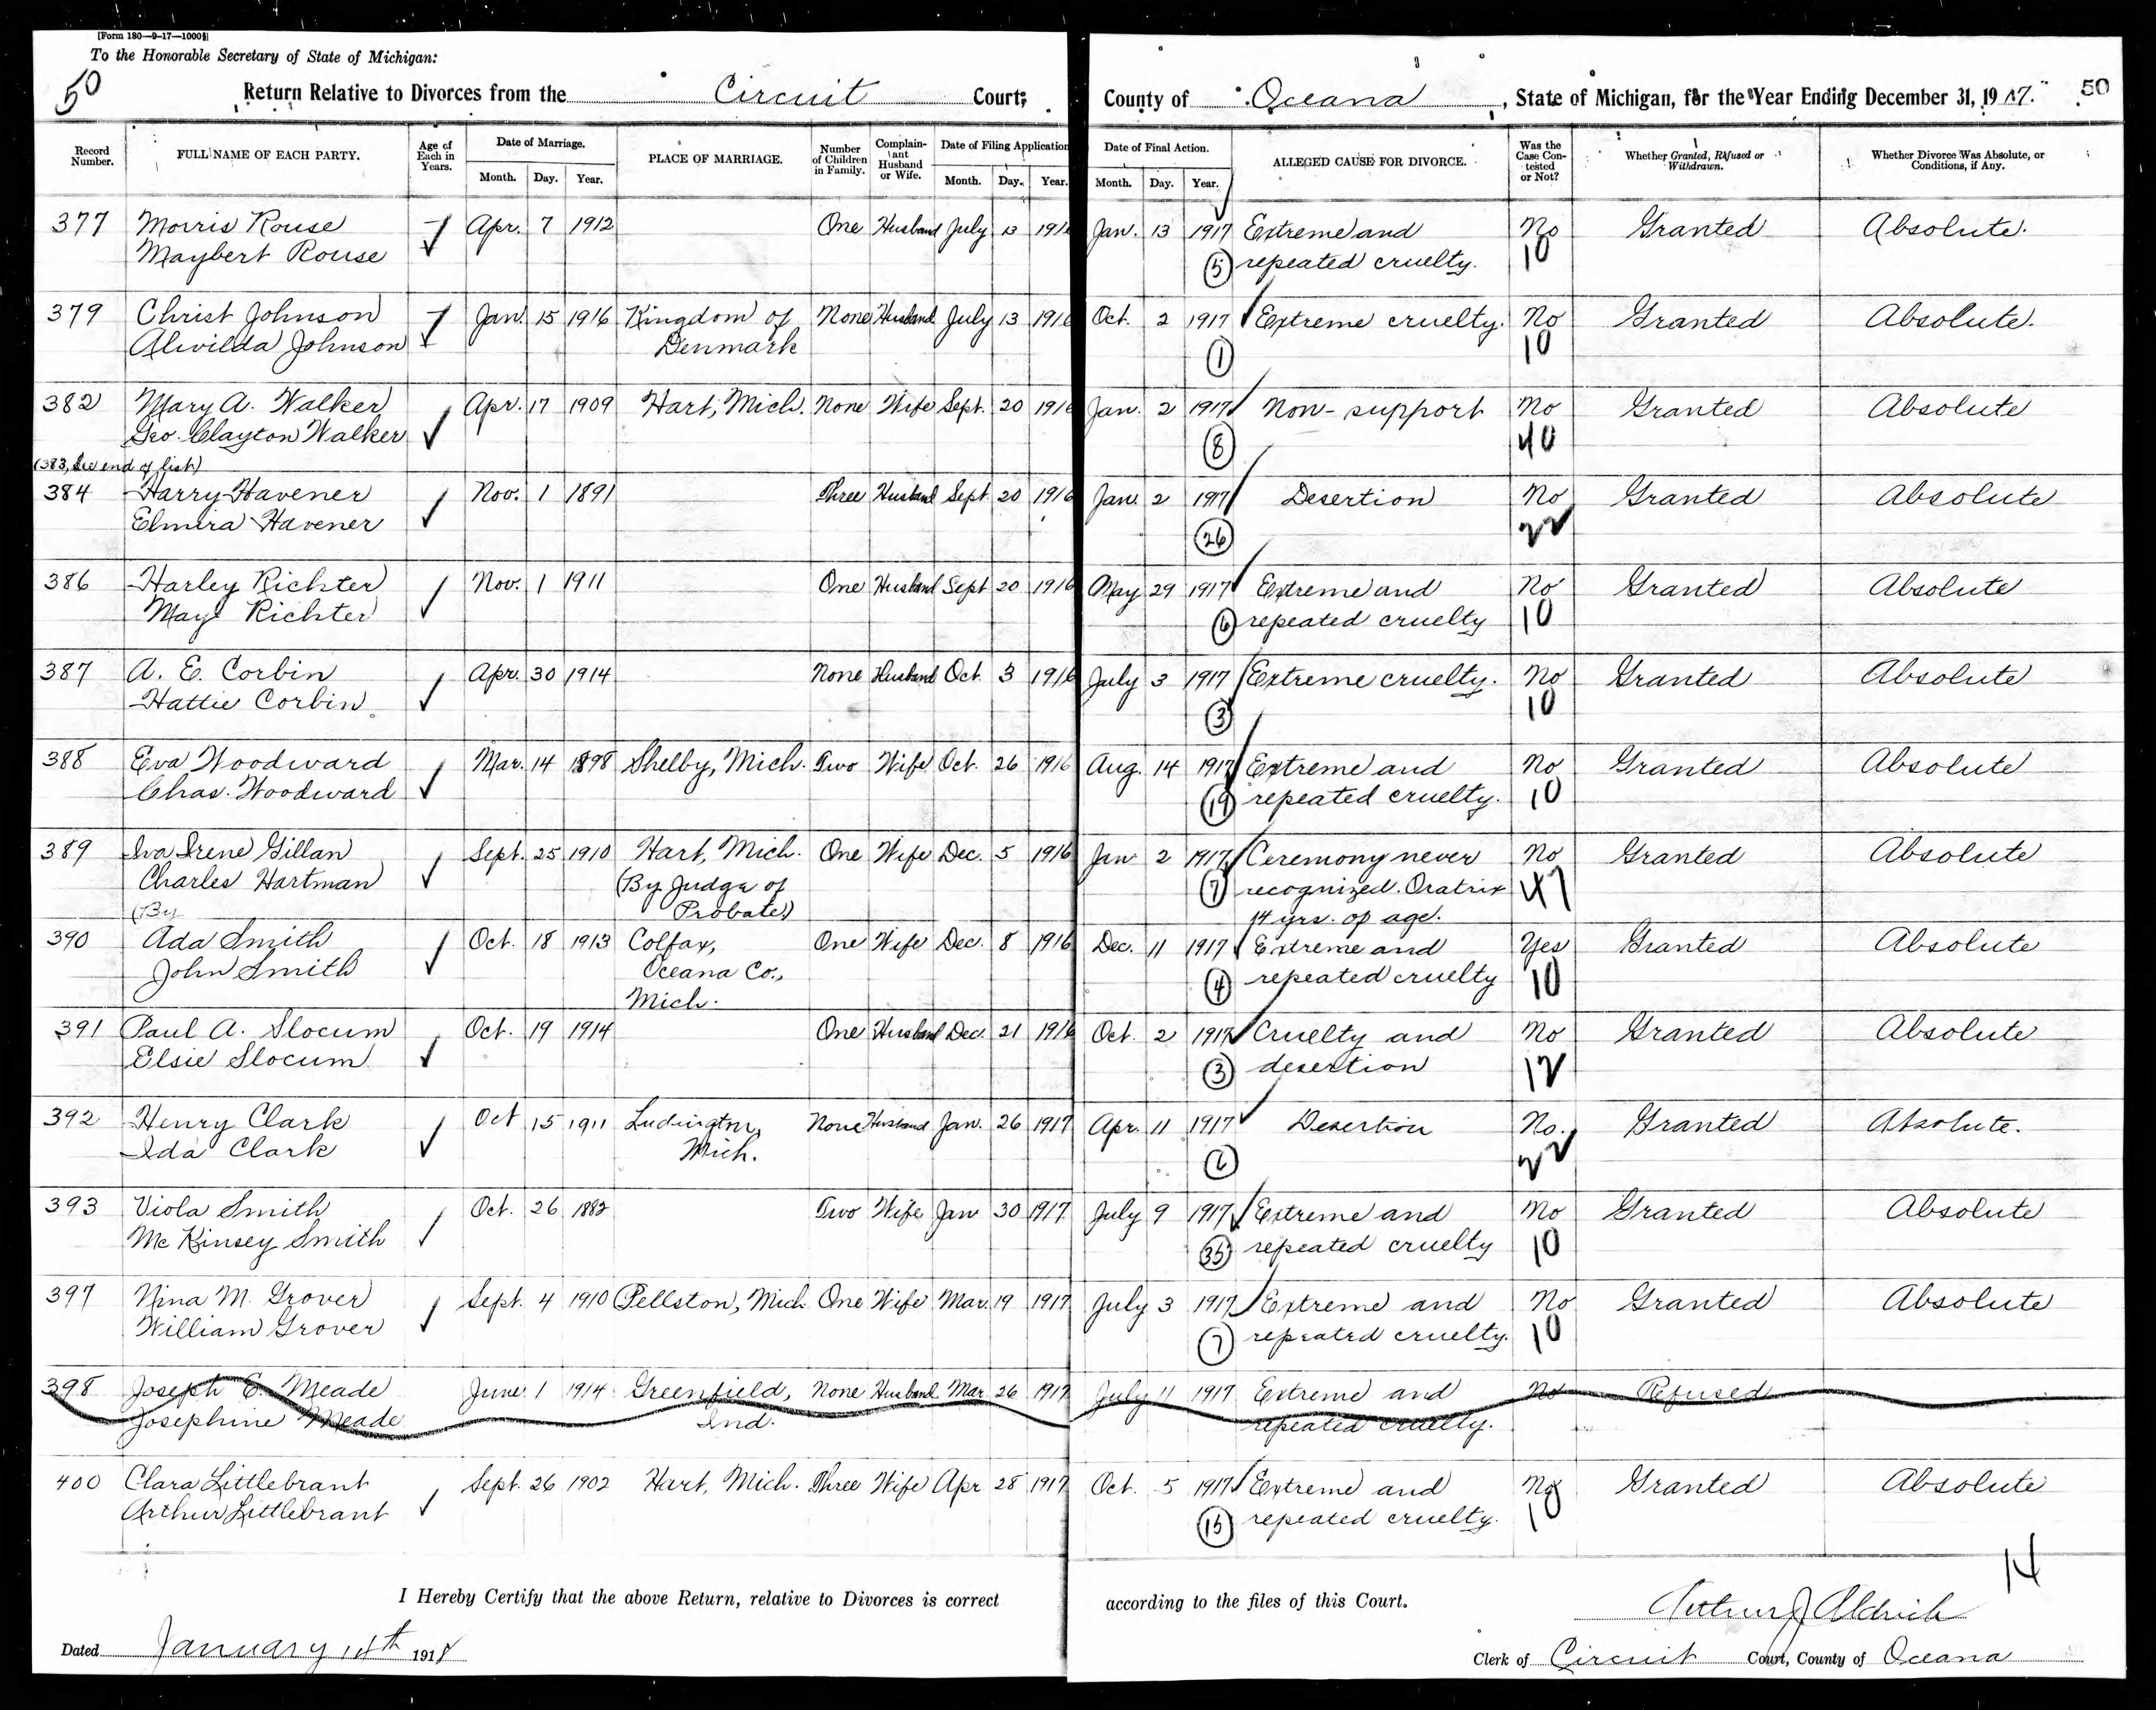 [Form 180—9-17—1000§]
To the Honorable Secretary of State of Michigan:
50 Return Relative to Divorces from the Circuit Court; County of Oceana, State of Michigan, for the Year Ending December 31, 1917. 50
Record Number. FULL NAME OF EACH PARTY. Age of Each in Years. Date of Marriage. Month. Day. Year. PLACE OF MARRIAGE. Number of Children in Family. Complainant Husband or Wife. Date of Filing Application Month. Day. Year. Date of Final Action. Month. Day. Year. ALLEGED CAUSE FOR DIVORCE. Was the Case Contested or Not? Whether Granted, Refused or Withdrawn. Whether Divorce Was Absolute, or Conditions, if Any.
377 Morris Rouse Apr. 7 1912 One Husband July 13 1916 Jan. 13 1917 Extreme and No Granted Absolute.
Maybert Rouse 5 repeated cruelty. 10
379 Christ Johnson Jan. 15 1916 Kingdom of None Husband July 13 1916 Oct. 2 1917 Extreme cruelty. No Granted Absolute.
Alvilda Johnson Denmark 1 10
382 Mary A. Walker Apr. 17 1909 Hart, Mich. None Wife Sept. 20 1916 Jan. 2 1917 Non-support No Granted Absolute
Geo. Clayton Walker 8 40
(383, See end of list)
384 Harry Havener Nov. 1 1891 Three Husband Sept. 20 1916 Jan. 2 1917 Desertion No Granted Absolute
Elmira Havener 26 22
386 Harley Richter Nov. 1 1911 One Husband Sept 20 1916 May 29 1917 Extreme and No Granted Absolute
May Richter 6 repeated cruelty 10
387 A. E. Corbin Apr. 30 1914 None Husband Oct. 3 1916 July 3 1917 Extreme cruelty. No Granted Absolute
Hattie Corbin. 3 10
388 Eva Woodward Mar. 14 1898 Shelby, Mich. Two Wife Oct. 26 1916 Aug. 14 1917 Extreme and No Granted Absolute
Chas. Woodward 19 repeated cruelty. 10
389 Iva Irene Gillan Sept. 25 1910 Hart, Mich. One Wife Dec. 5 1916 Jan 2 1917 Ceremony never No Granted Absolute
Charles Hartman (By Judge of 7 recognized. Oratrix 47
(By Probate) 14 yrs. of age.
390 Ada Smith Oct. 18 1913 Colfax, One Wife Dec. 8 1916 Dec. 11 1917 Extreme and Yes Granted Absolute
John Smith Oceana Co., 4 repeated cruelty 10
Mich.
391 Paul A. Slocum Oct. 19 1914 One Husband Dec. 21 1916 Oct. 2 1917 Cruelty and No Granted Absolute
Elsie Slocum 3 desertion 12
392 Henry Clark Oct 15 1911 Ludington, None Husband Jan. 26 1917 Apr. 11 1917 Desertion No. Granted Absolute.
Ida Clark Mich. 6 22
393 Viola Smith Oct. 26 1882 Two Wife Jan 30 1917 July 9 1917 Extreme and No Granted Absolute
Mc Kinsey Smith 35 repeated cruelty 10
397 Nina M. Grover Sept. 4 1910 Pellston, Mich One Wife Mar. 19 1917 July 3 1917 Extreme and No Granted Absolute
William Grover 7 repeated cruelty. 10
398 Joseph E. Meade June 1 1914 Greenfield, None Husband Mar 26 1917 July 11 1917 Extreme and No Refused
Josephine Meade Ind. repeated cruelty.
400 Clara Littlebrant Sept. 26 1902 Hart, Mich. Three Wife Apr 28 1917 Oct. 5 1917 Extreme and No Granted Absolute
Arthur Littlebrant 15 repeated cruelty. 10
14
I Hereby Certify that the above Return, relative to Divorces is correct according to the files of this Court. Arthur J Aldrich
Dated January 14th 1918 Clerk of Circuit Court, County of Oceana